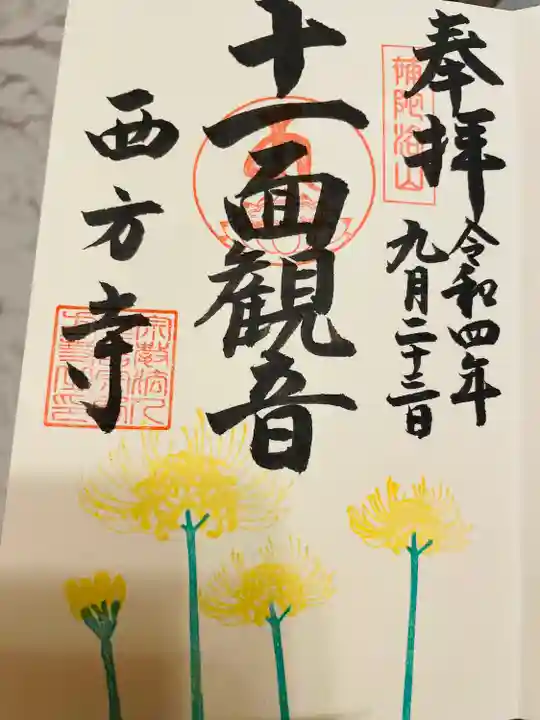 奉拝
補陀洛山
令和四年
九月二十三日
十一面観音
西方寺